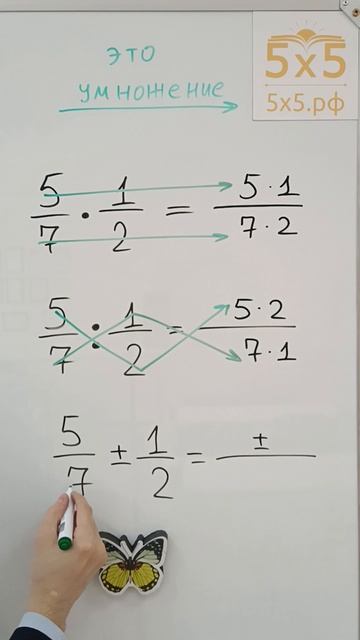 это
умножение
5x5
5x5.рф
5/7 · 1/2 = 5·1/7·2
5/7 : 1/2 = 5·2/7·1
5/7 ± 1/2 = ±/